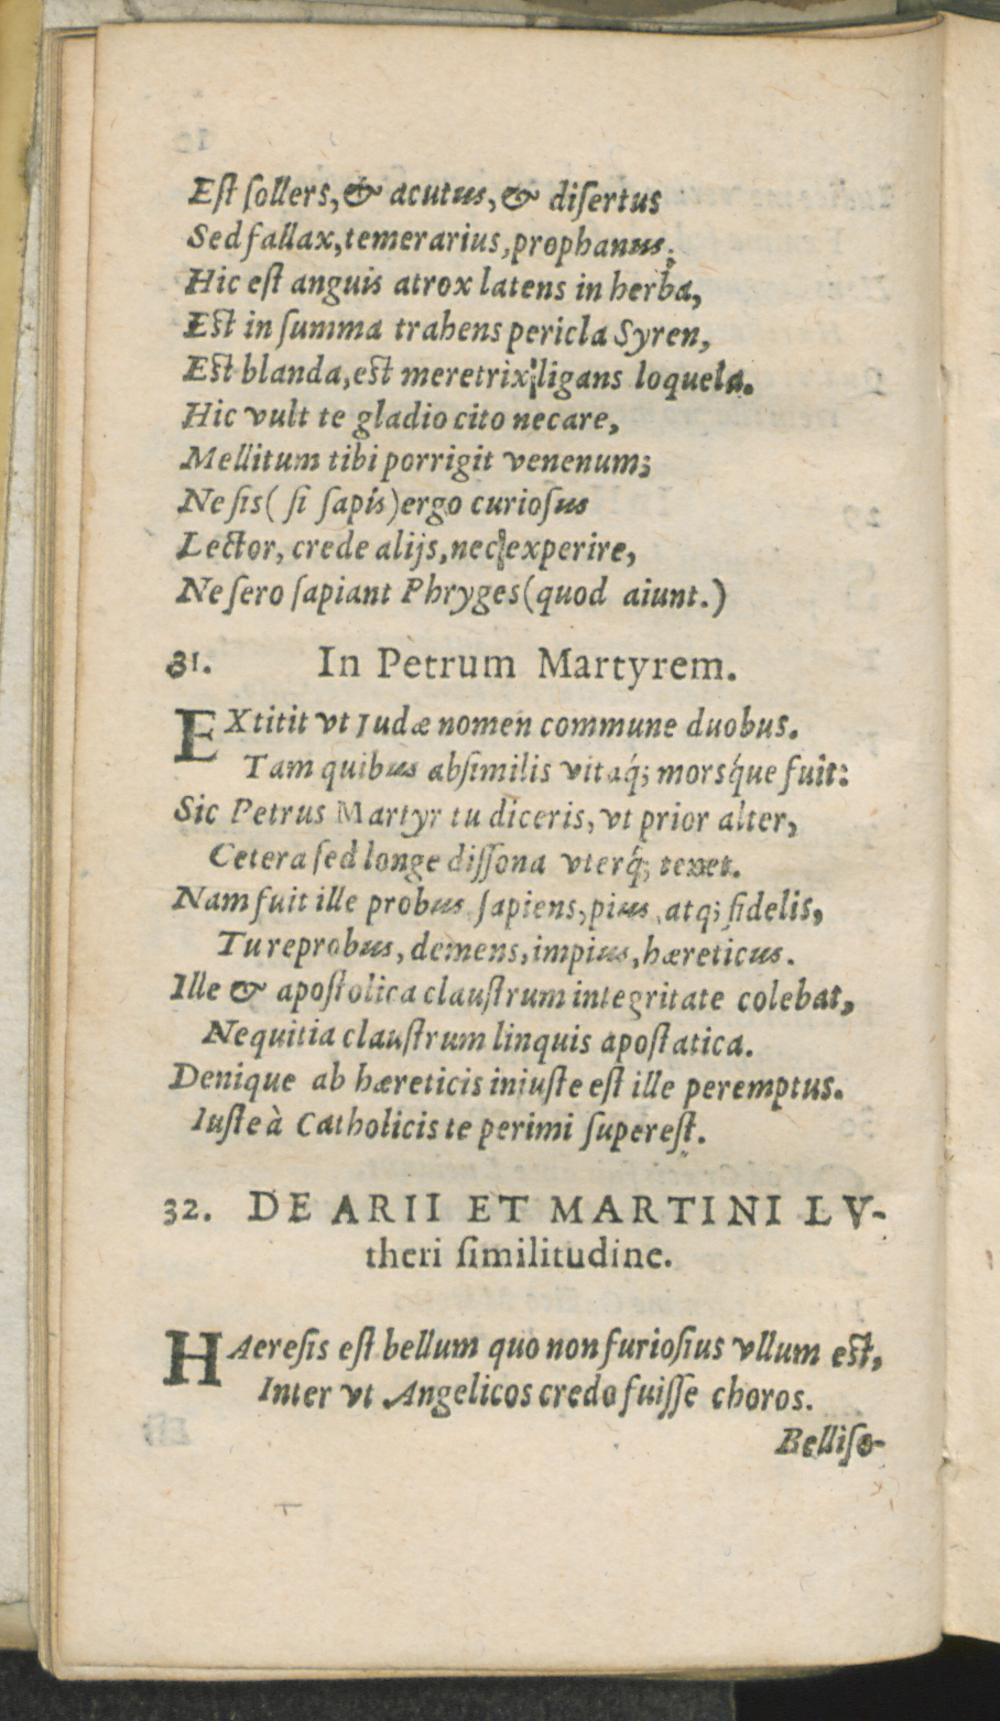 Est ſollers, & acutus, & diſertus
Sed fallax, temerarius, prophanus;
Hic est anguis atrox latens in herba,
Est in ſumma trahens pericla Syren,
Est blanda, est meretrix ligans loquela.
Hic vult te gladio cito necare,
Mellitum tibi porrigit venenum;
Ne ſis ( ſi ſapis) ergo curioſus
Lector, crede alijs, nec experire,
Ne ſero ſapiant Phryges (quod aiunt.)
31. In Petrum Martyrem.
EXtitit vt Judæ nomen commune duobus.
Tam quibus abſimilis vitaq́; morsq́ue fuit:
Sic Petrus Martyr tu diceris, vt prior alter,
Cetera ſed longe diſſona vterq́; tenet.
Nam fuit ille probus ſapiens, pius, atq; fidelis,
Tu reprobus, demens, impius, hæreticus.
Ille & apoſtolica clauſtrum integritate colebat,
Nequitia clauſtrum linquis apoſtatica.
Denique ab hæreticis iniuſte eſt ille peremptus.
Iuſte à Catholicis te perimi ſupereſt.
32. DE ARII ET MARTINI LV-
theri ſimilitudine.
HAereſis eſt bellum quo non furioſius vllum est,
Inter vt Angelicos credo fuiſſe choros.
Belliſo-